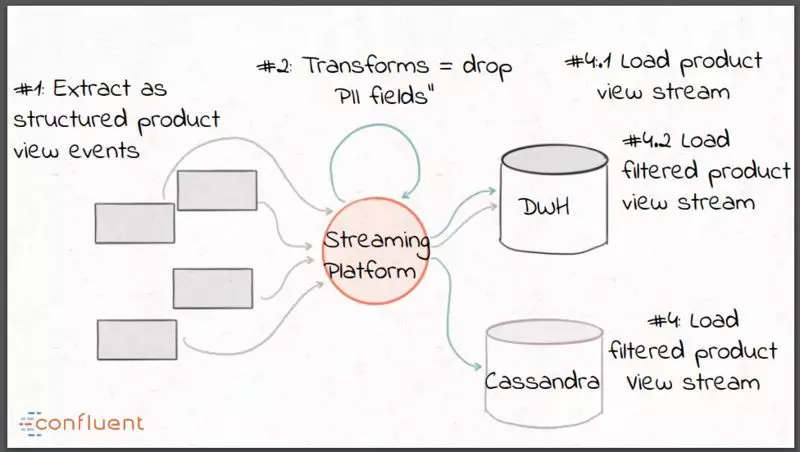 #1: Extract as
structured product
view events
#2: Transforms = drop
PII fields"
#4.1 Load product
view stream
#4.2 Load
filtered product
view stream
DWH
Streaming
Platform
#4: Load
filtered product
view stream
Cassandra
confluent